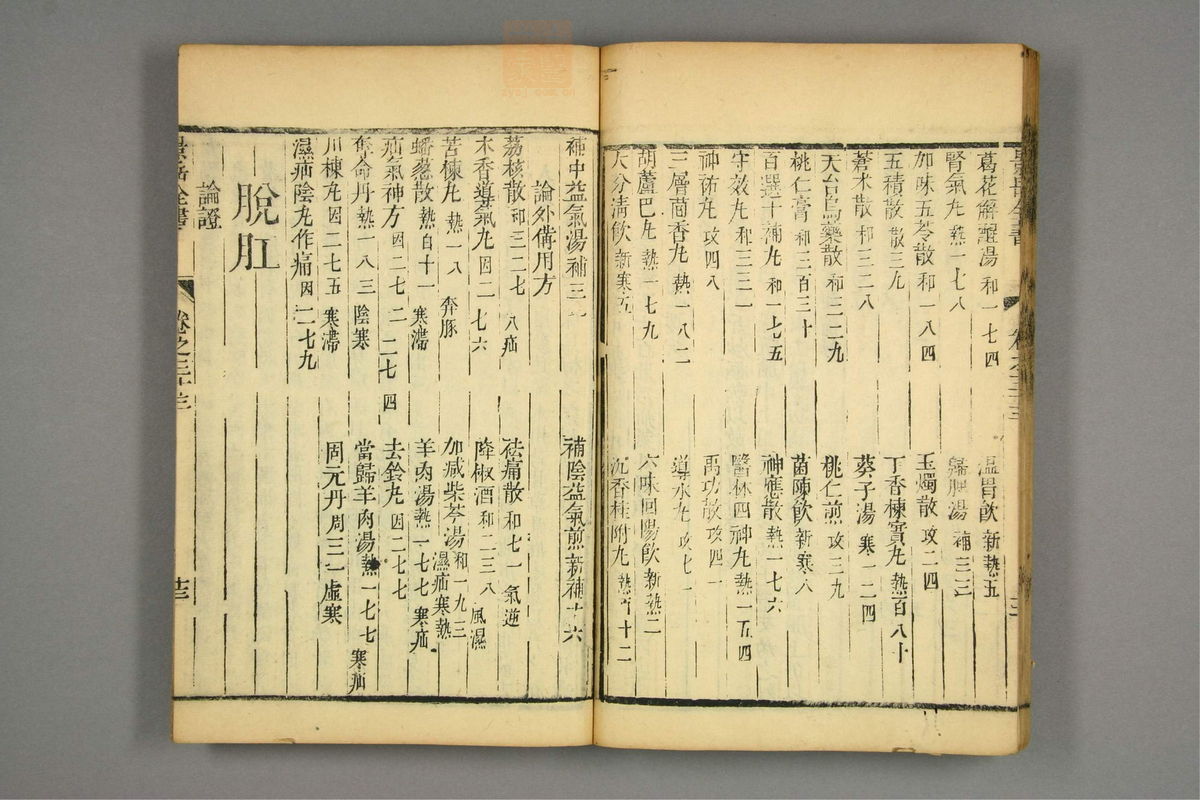 葛花解醒湯 和一七四
溫胃飲 新熱五
腎氣丸 熱一七八
歸脾湯 補三二
加味五苓散 和一八四
玉燭散 攻二四
五積散 散三九
丁香楝實丸 熱百八十
蒼朮散 和三二八
葵子湯 寒一二四
天台烏藥散 和三二九
桃仁煎 攻三九
桃仁膏 和三百三十
茵陳飲 新寒八
百選十補丸 和一七五
神應散 熱一七六
守效丸 和三三一
醫林四神丸 熱一五四
神祐丸 攻四八
禹功散 攻四一
三層茴香丸 熱一八二
導水丸 攻七一
胡蘆巴丸 熱一七九
六味回陽飲 新熱二
大分淸飲 新寒五
沉香桂附丸 熱百十二
補中益氣湯 補三一
補陰益氣煎 新補十六
論外備用方
荔核散 和三二七 八疝
祛痛散 和七一 氣逆
木香導氣丸 因二七六
降椒酒 和二三八 風濕
苦楝丸 熱一八 奔豚
加减柴苓湯 和一九三 濕疝寒熱
蟠蔥散 熱百十一 寒滯
羊肉湯 熱一七七 寒疝
疝氣神方 因二七二 二七四
去鈴丸 因二七七
奪命丹 熱一八三 陰寒
當歸羊肉湯 熱一七七 寒疝
川楝丸 因二七五 寒滯
固元丹 周三一 虛寒
濕疝陰丸作痛 因二七九
脫肛
論證
景岳全書
卷之三十三